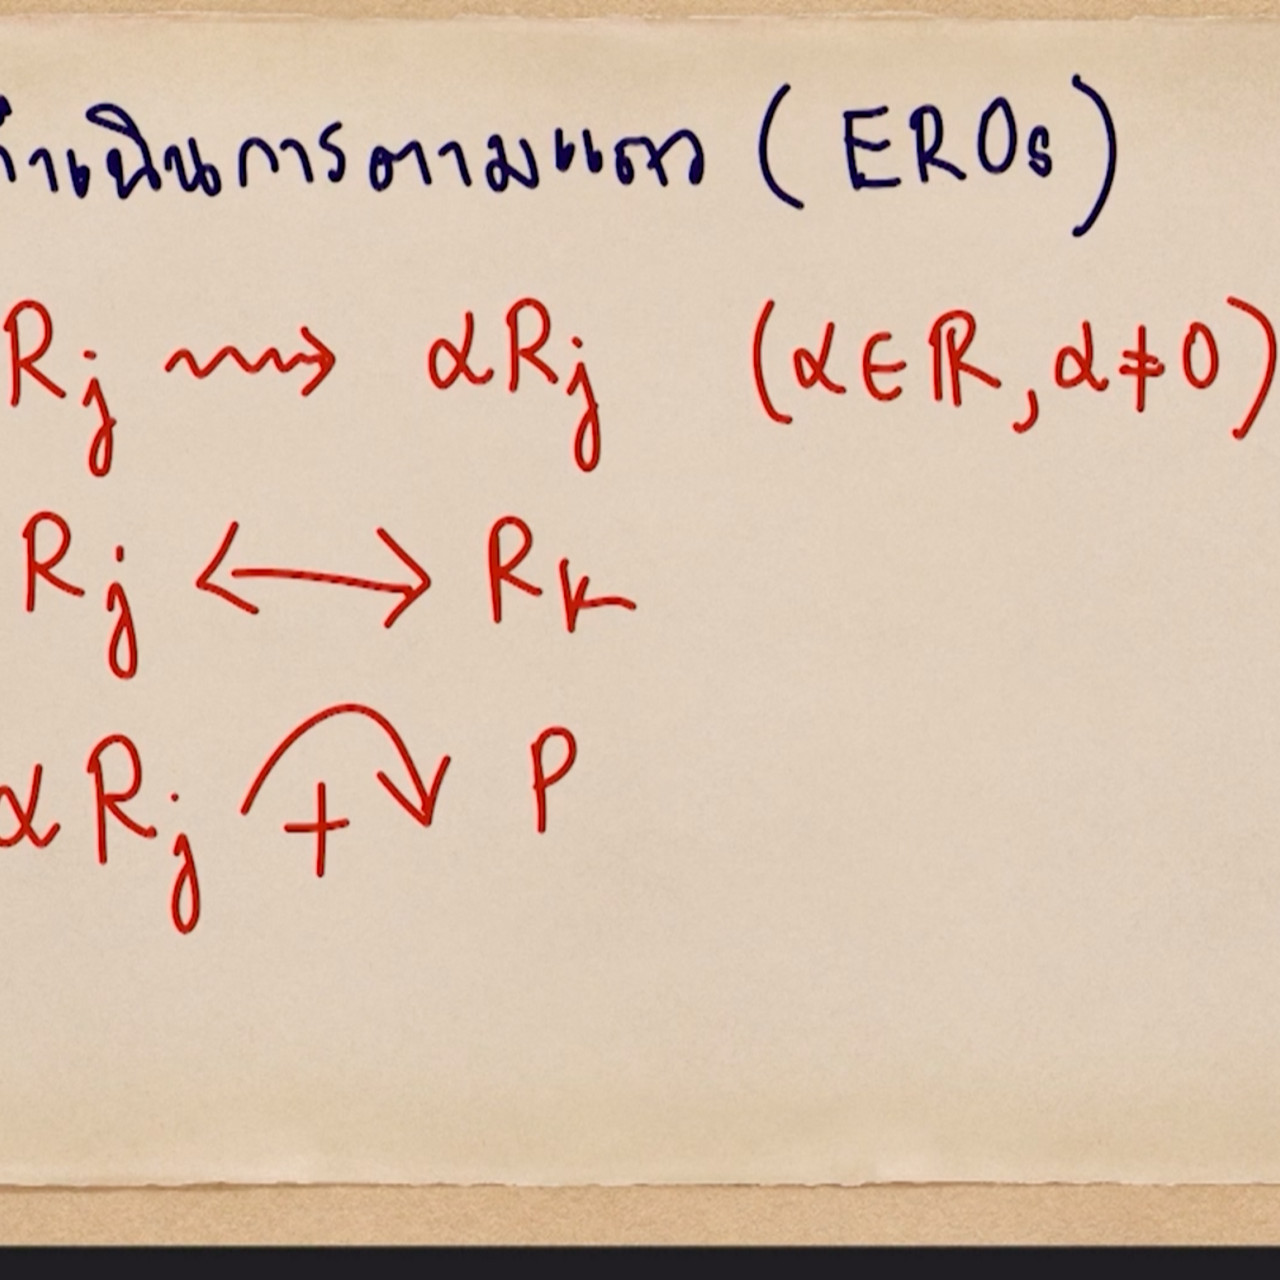 ดำเนินการตามแถว (EROs)
Rj ⇝ αRj (α∈ℝ, α≠0)
Rj ⟷ Rk
αRj + ↷ P